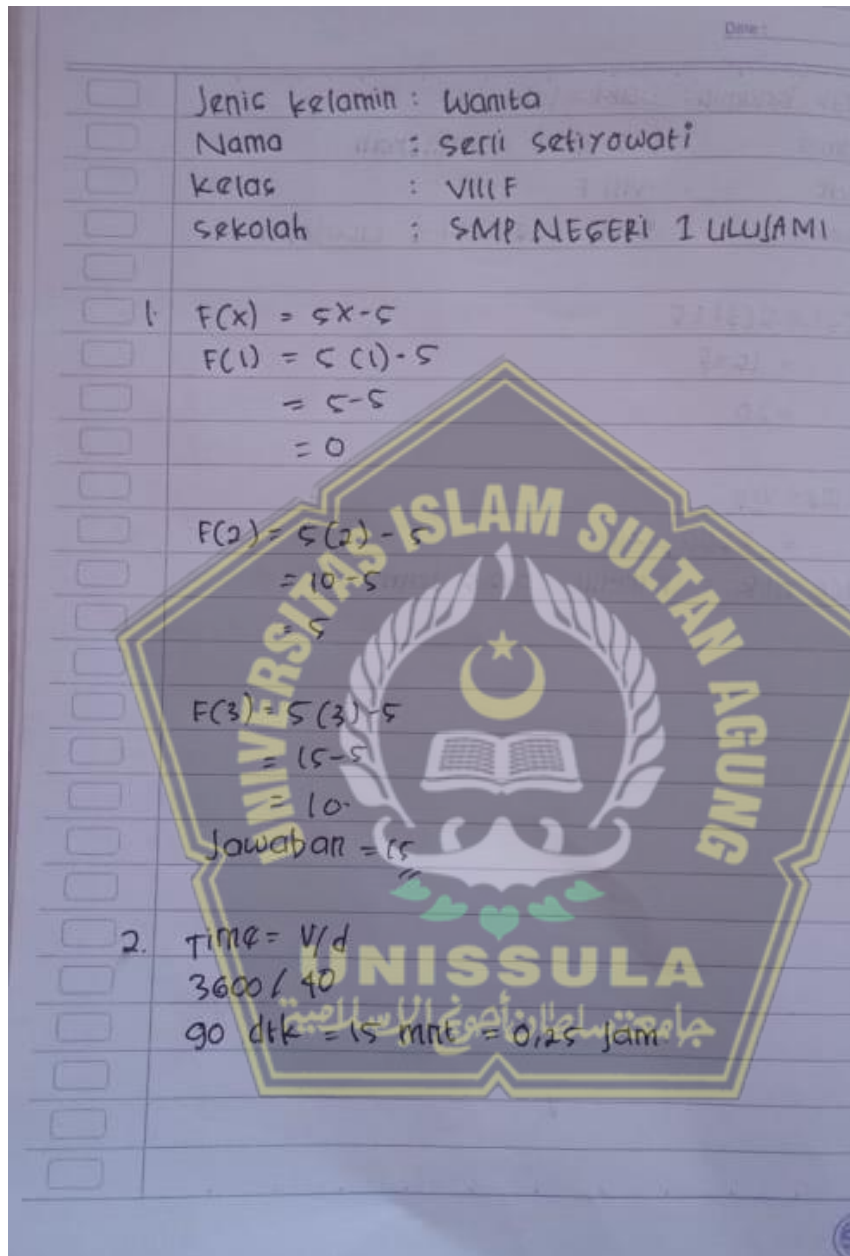 Date:
Jenis kelamin : Wanita
Nama : Serli setiyowati
kelas : VIII F
sekolah : SMP NEGERI 1 ULUJAMI
1. F(x) = 5x-5
F(1) = 5 (1) - 5
= 5-5
= 0
F(2) = 5 (2) - 5
= 10-5
= 5
F(3) = 5 (3) -5
= 15-5
= 10.
Jawaban = 15
2. Time = V/d
3600 / 40
90 dtk = 15 mnt = 0,25 Jam
UNIVERSITAS ISLAM SULTAN AGUNG
UNISSULA
جامعة سلطان أجونج الإسلامية